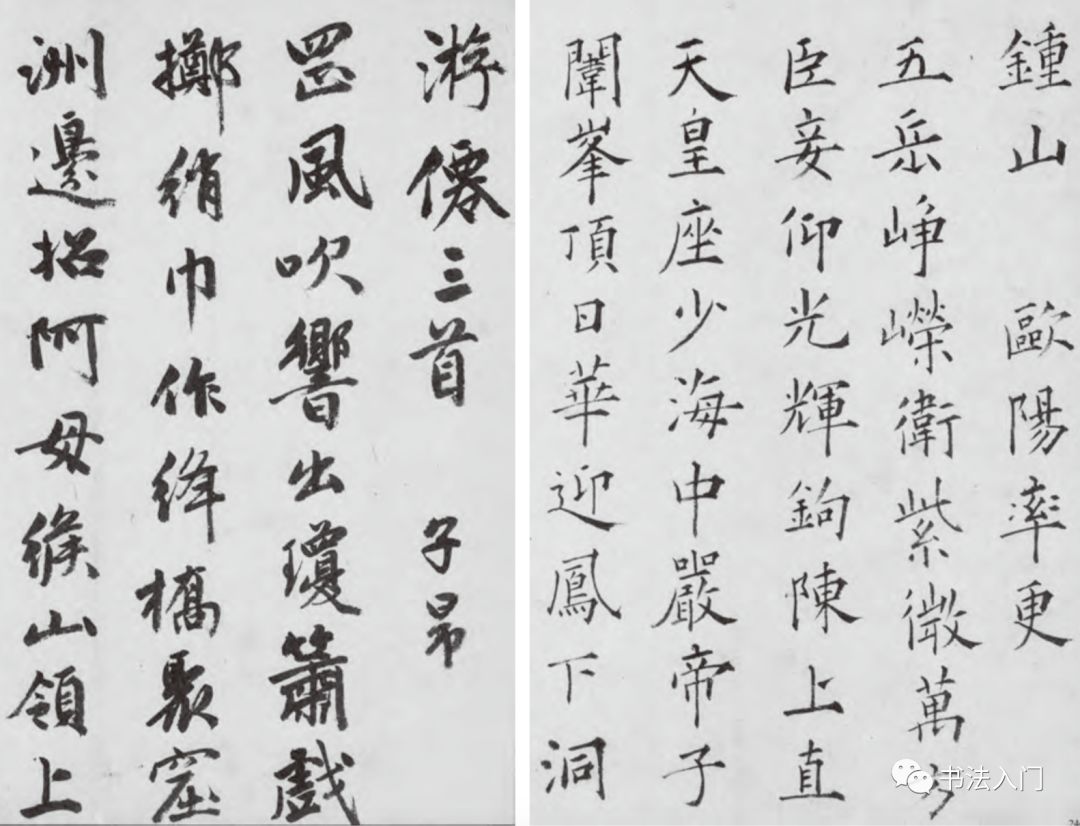 鍾山 歐陽率更
五岳崢嶸衛紫微萬
臣妾仰光輝鉤陳上直
天皇座少海中嚴帝子
闈峯頂日華迎鳳下洞
游僊三首 子昂
罡風吹響出瓊簫戲
擲綃巾作絳橋聚窟
洲邊招阿母緱山領上
书法入门